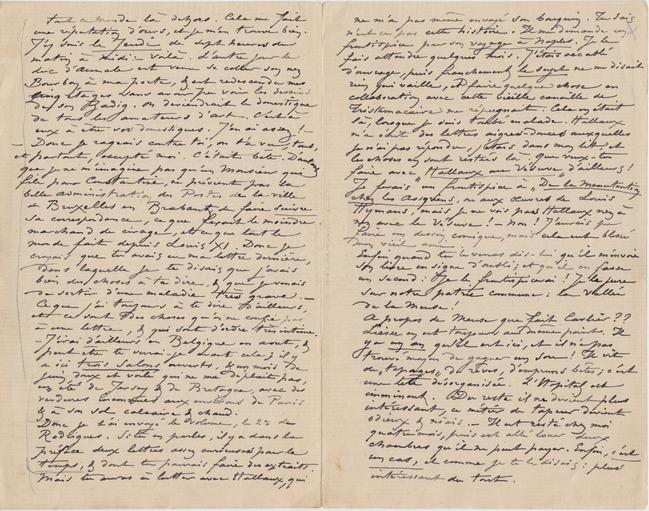 tout ce monde là dehors. Cela me fait
une réputation d'ours, et je m'en trouve bien.
J'y suis le Jeudi de sept heures du
matin à midi : voilà. L'autre jour le
duc d'Aumale est venu se coller son nez
Bourbon à ma porte, & est redescendu mes
cinq étages sans avoir pu voir les dessins
de son Zadig. On deviendrait le domestique
de tous les amateurs d'art. C'est à
eux à être vos domestiques. J'en ai assez ! —
— Donc je rageais contre toi, on t'a vu, tous,
et partout, excepté moi. C'était bête.
que je ne m'imagine pas qu'un Monsieur qui
file pour Constantine, ne prévient pas la
belle administration des Postes de la ville
de Bruxelles en Brabant de faire suivre
sa correspondance, ce que ferait le moindre
marchand de cirage, et ce que tout le
monde fait depuis Louis XI. Donc je
croyais que tu avais eu ma lettre dernière,
dans laquelle je te disais que j'avais
bien des choses à te dire, & que je venais
de sortir d'une maladie très grave. —
Ce que j'ai toujours à te dire d'ailleurs,
et ce sont des choses qu'on ne confie pas
à une lettre, & qui sont d'ordre très intime.
— J'irai d'ailleurs en Belgique en août, &
peut être te verrai-je avant cela ; il y
a ici trois Salons ouverts, & un mois de
juin doux et voilé qui ne me déplait pas,
un été de Jersey & de Bretagne, avec des
verdures inconnues aux environs de Paris
& à son sol calcaire & chaud.
Donc je t'ai envoyé le volume, le 2d de
Rodrigues. Si tu en parles, il y a dans la
préface deux lettres assez curieuses pour le
temps, & dont tu pourrais faire des extraits.
Mais tu auras à lutter avec Hallaux, qui
ne m'a pas même envoyé son bouquin. Tu sais
n'est ce pas cette histoire. Il me demande un
frontispice pour son voyage à Naples. Je le
fais attendre quelques mois. J'étais accablé
d'ouvrage, puis franchement, le sujet ne me disait
rien qui vaille, et faire quelque chose en
collaboration avec cette vieille canaille de
me répugnait. Cela en était
là, lorsque je suis tombé malade. Hallaux
m'a écrit des lettres aigres-douces auxquelles
je n'ai pas répondu, j'étais dans mon lit, et
les choses en sont restées là. Que veux-tu
faire avec Hallaux ou Veuve, d'ailleurs !
Je ferais un frontispice à, De la
chez les Assyriens, ou aux Œuvres de Louis
Hymans, mais je ne vois pas Hallaux nez à
nez avec le Vésuve ! — Non ! J'aurais pu
faire un dessin comique, mais cela eut blessé
mon vieil ami.
Enfin quand tu le verras dis-lui qu'il m'envoie
son livre en signe d'oubli, et qu'il en fasse
un second. Je le frontispicerai ! Je le jure
sur notre patrie commune : la vallée
de la Meuse !
A propos de Meuse que fait Carlier ??
Liesse en est toujours au même point. Il
y a un an qu'il est ici, et il n'a pas
trouvé moyen de gagner un sou ! Il vit
de tapages, de rêves, d'emprunts bêtes, c'est
une tête désorganisée. L'hôpital est
imminent. Du reste il ne devient plus
intéressant, ce métier de tapeur devient
odieux & niais. — Il est resté chez moi
quatre mois, puis est allé louer deux
chambres qu'il ne peut payer. Enfin, c'est
un cas, et comme je te le disais : plus
intéressant du tout.